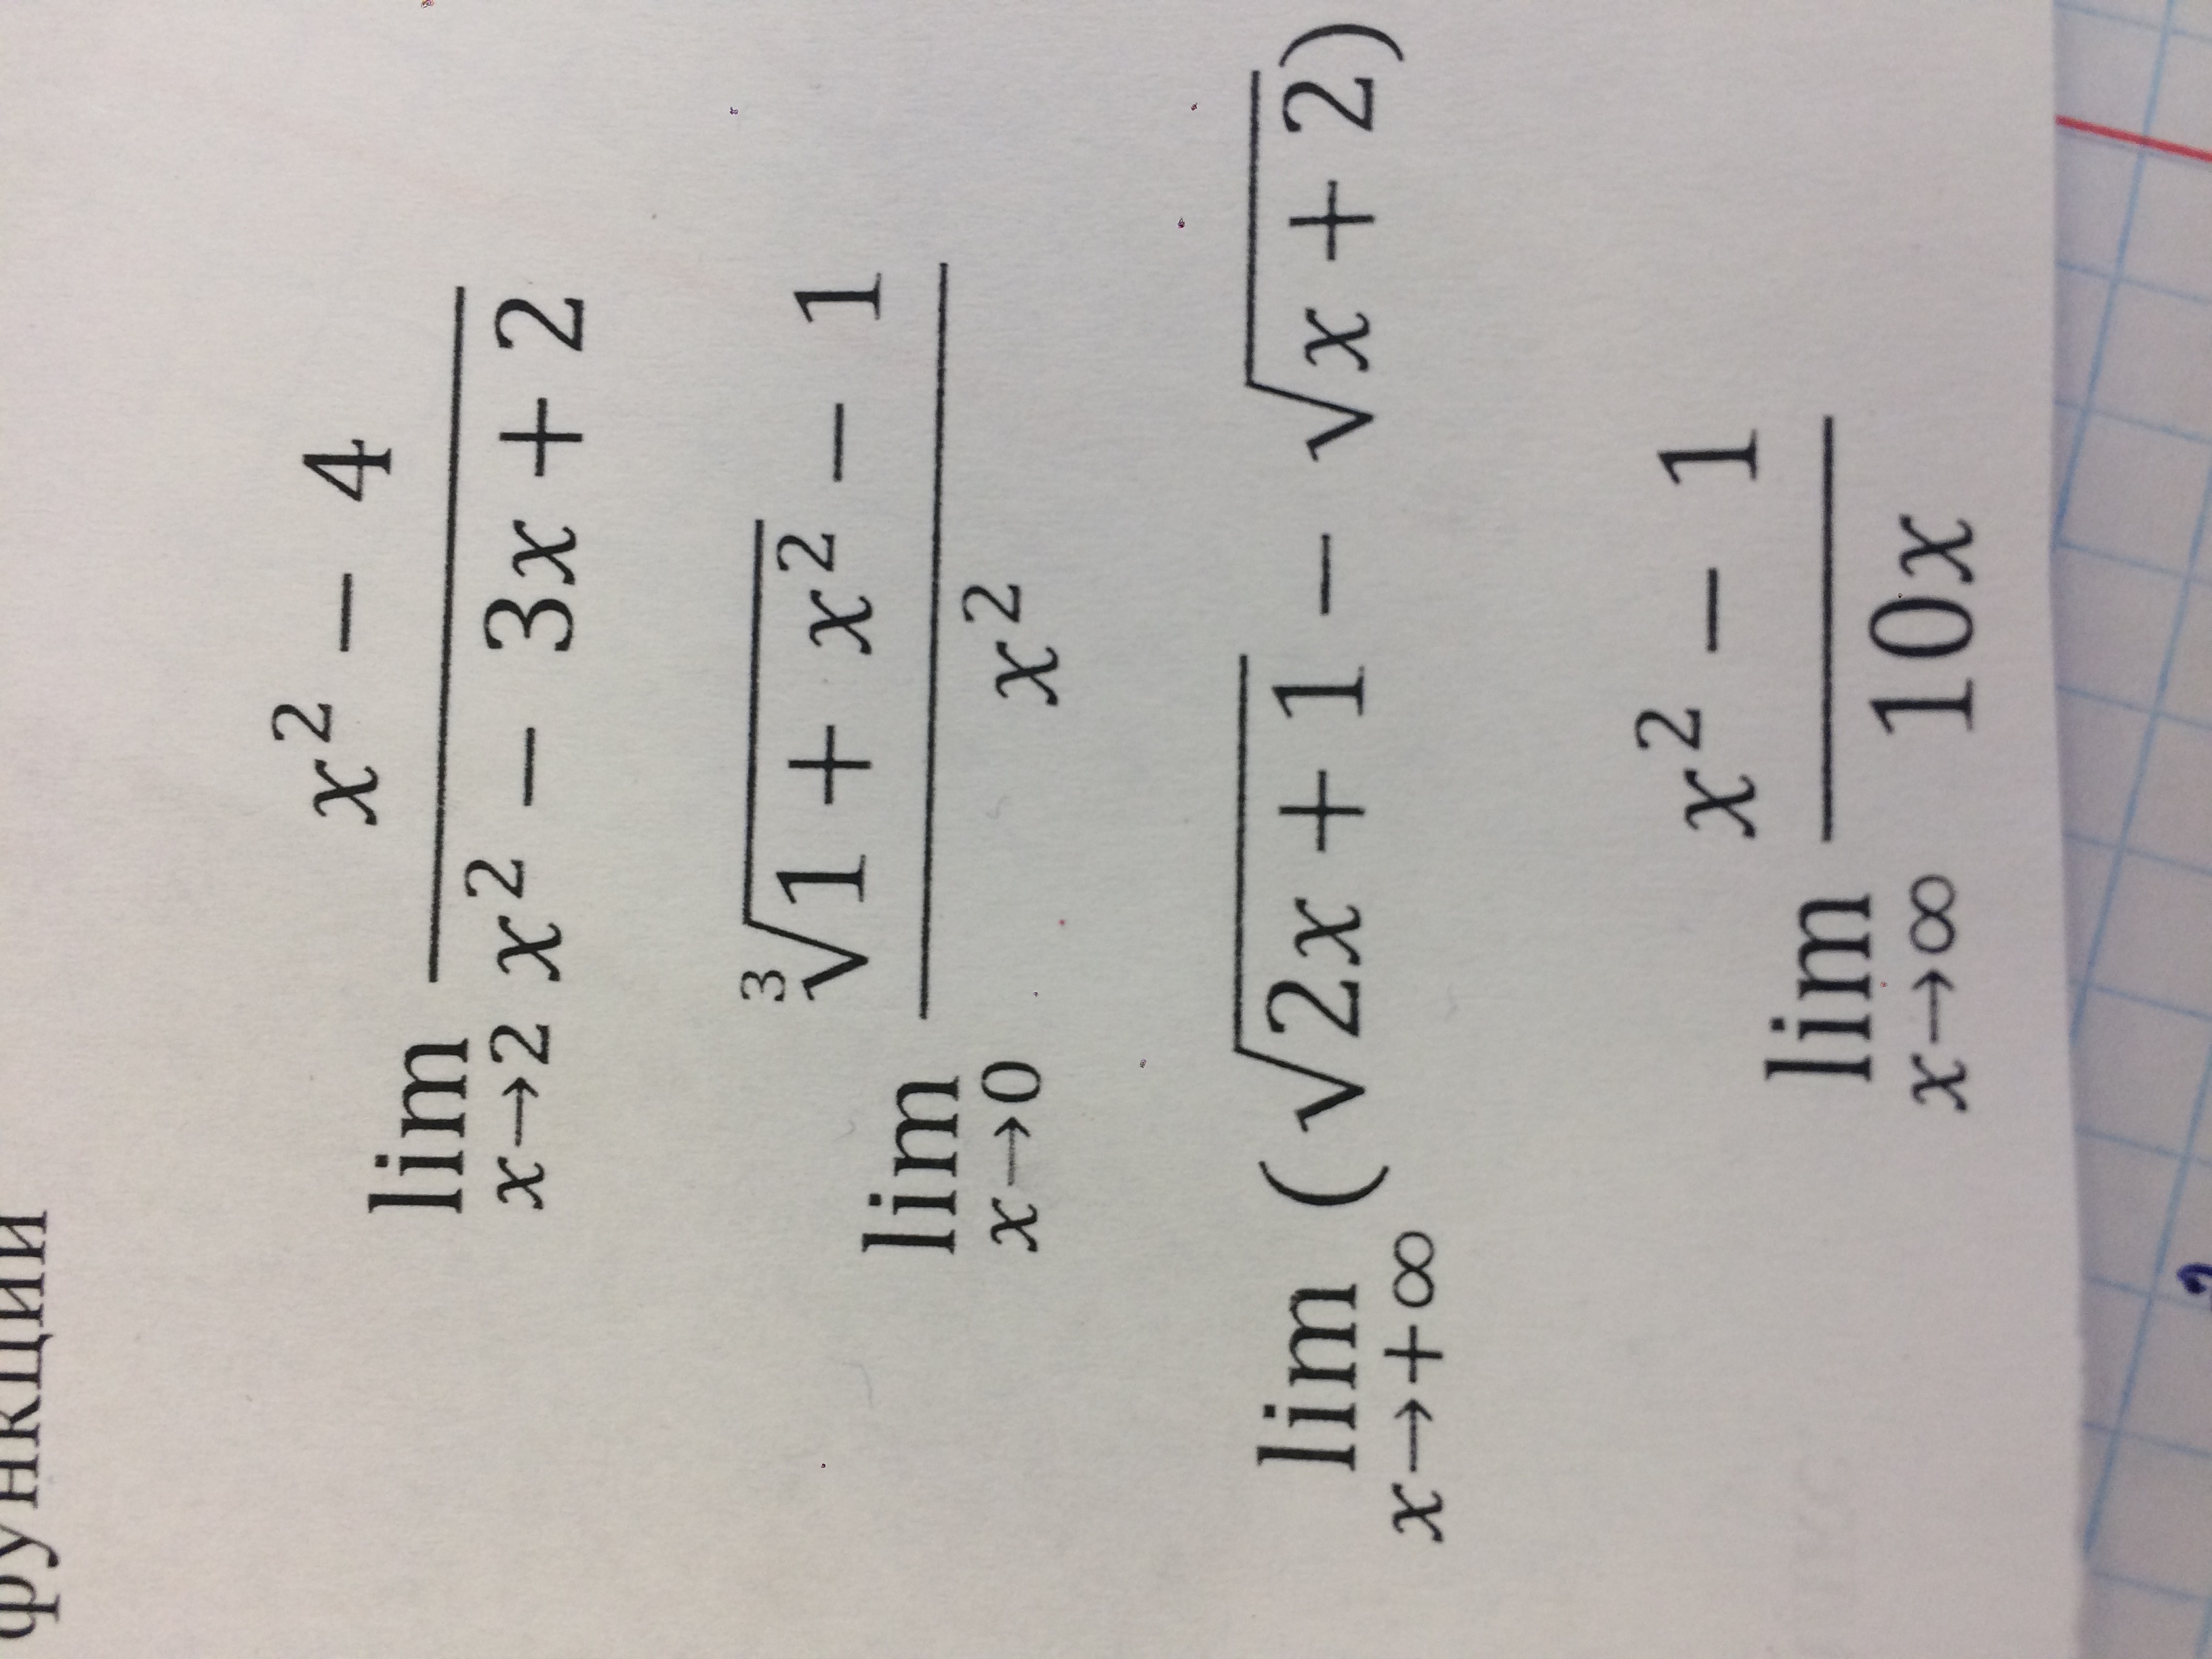 функции
lim x→2 (x² − 4)/(x² − 3x + 2)
lim x→0 (∛(1 + x²) − 1)/x²
lim x→+∞ (√(2x + 1) − √(x + 2))
lim x→∞ (x² − 1)/(10x)